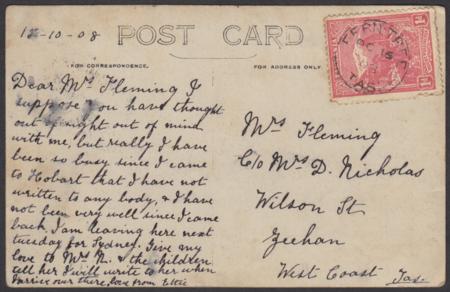 12-10-08
POST CARD
FOR CORRESPONDENCE.
FOR ADDRESS ONLY
Dear Mrs Fleming I
suppose you have thought
out of sight out of mind
with me, but really I have
been so busy since I came
to Hobart that I have not
written to any body, & I have
not been very well since I came
back. I am leaving here next
tuesday for Sydney. Give my
love to Mrs N. & the children
tell her I will write to her when
I arrive over there, love from Ettie
FERN TREE
OC 15
TAS
Mrs Fleming
C/o Mrs D. Nicholas
Wilson St
Zeehan
West Coast Tas.